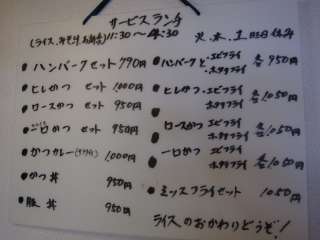 サービスランチ
(ライス、みそ汁、お新香) 11:30〜4:30
火、木、土 日祭日休み
●ハンバークセット 770円
●ヒレかつ セット 1,000円
●ロースかつ セット 950円
●一口かつ セット 950円
●かつカレー 1,000円
●かつ丼 950円
●豚丼 950円
●ハンバークと ・エビフライ ・ホタテフライ 各950円
●ヒレかつ・エビフライ ホタテフライ 各1,050円
●ロースかつ エビフライ ホタテフライ 各1,050円
●一口かつ エビフライ ホタテフライ 各1,050円
●ミックスフライセット 1,050円
ライスのおかわりどうぞ!